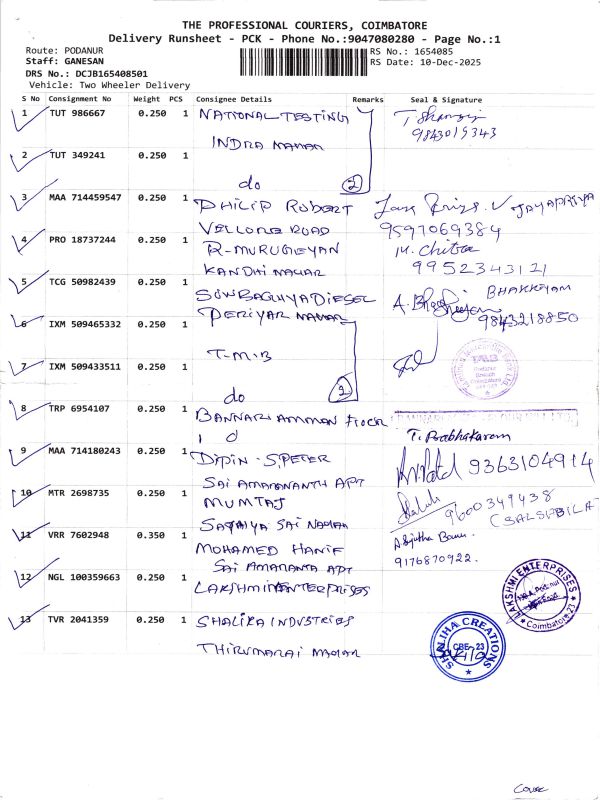 THE PROFESSIONAL COURIERS, COIMBATORE
Delivery Runsheet - PCK - Phone No.:9047080280 - Page No.:1
Route: PODANUR
RS No.: 1654085
Staff: GANESAN
RS Date: 10-Dec-2025
DRS No.: DCJB165408501
Vehicle: Two Wheeler Delivery
S No Consignment No Weight PCS Consignee Details Remarks Seal & Signature
1 TUT 986667 0.250 1 NATIONAL TESTING
9843019343
INDRA NAGAR
2 TUT 349241 0.250 1
do 2
3 MAA 714459547 0.250 1 PHILIP ROBERT
JAYAPRIYA
VELLORE ROAD 9597069384
4 PRO 18737244 0.250 1 R-MURUGEYAN M. Chitra
KANDHI NAGAR 9952343121
5 TCG 50982439 0.250 1
BHAKKYAM
SOWBAGHYA DIESEL
PERIYAR NAGAR 9843218850
6 IXM 509465332 0.250 1
T-M-B
7 IXM 509433511 0.250 1
do 2
TMB
Podanur
Branch
Coimbatore
8 TRP 6954107 0.250 1
BANNARI AMMAN
T. Prabhakaran
9 MAA 714180243 0.250 1 DIPIN - S.PETER
9363104914
SAI AMARNANTH APT
10 MTR 2698735 0.250 1 MUMTAJ
9600349438
SATHIYA SAI NAGAR
11 VRR 7602948 0.350 1 MOHAMED HANIF
9176870922.
SAI AMARANTA APT
12 NGL 100359663 0.250 1 LAKSHMI ENTERPRISES
LAKSHMI ENTERPRISES
Coimbatore-23
13 TVR 2041359 0.250 1 SHALIKA INDUSTRIES
SHALIHA CREATIONS
CBE-23
THIRUMARAI NAGAR